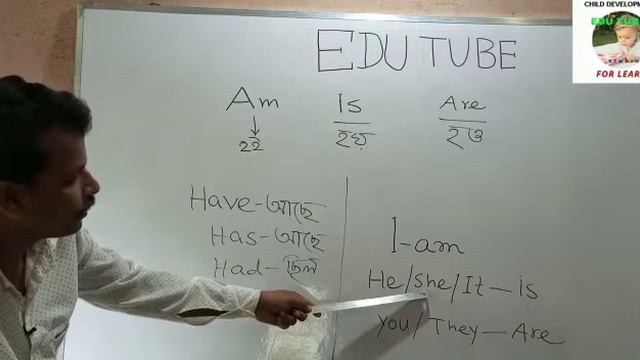 CHILD DEVELOP
EDU TUBE
FOR LEAR
EDU TUBE
Am Is Are
হই হয় হও
Have-আছে
Has-আছে
Had-ছিল
I-am
He/She/It-is
You/They-Are